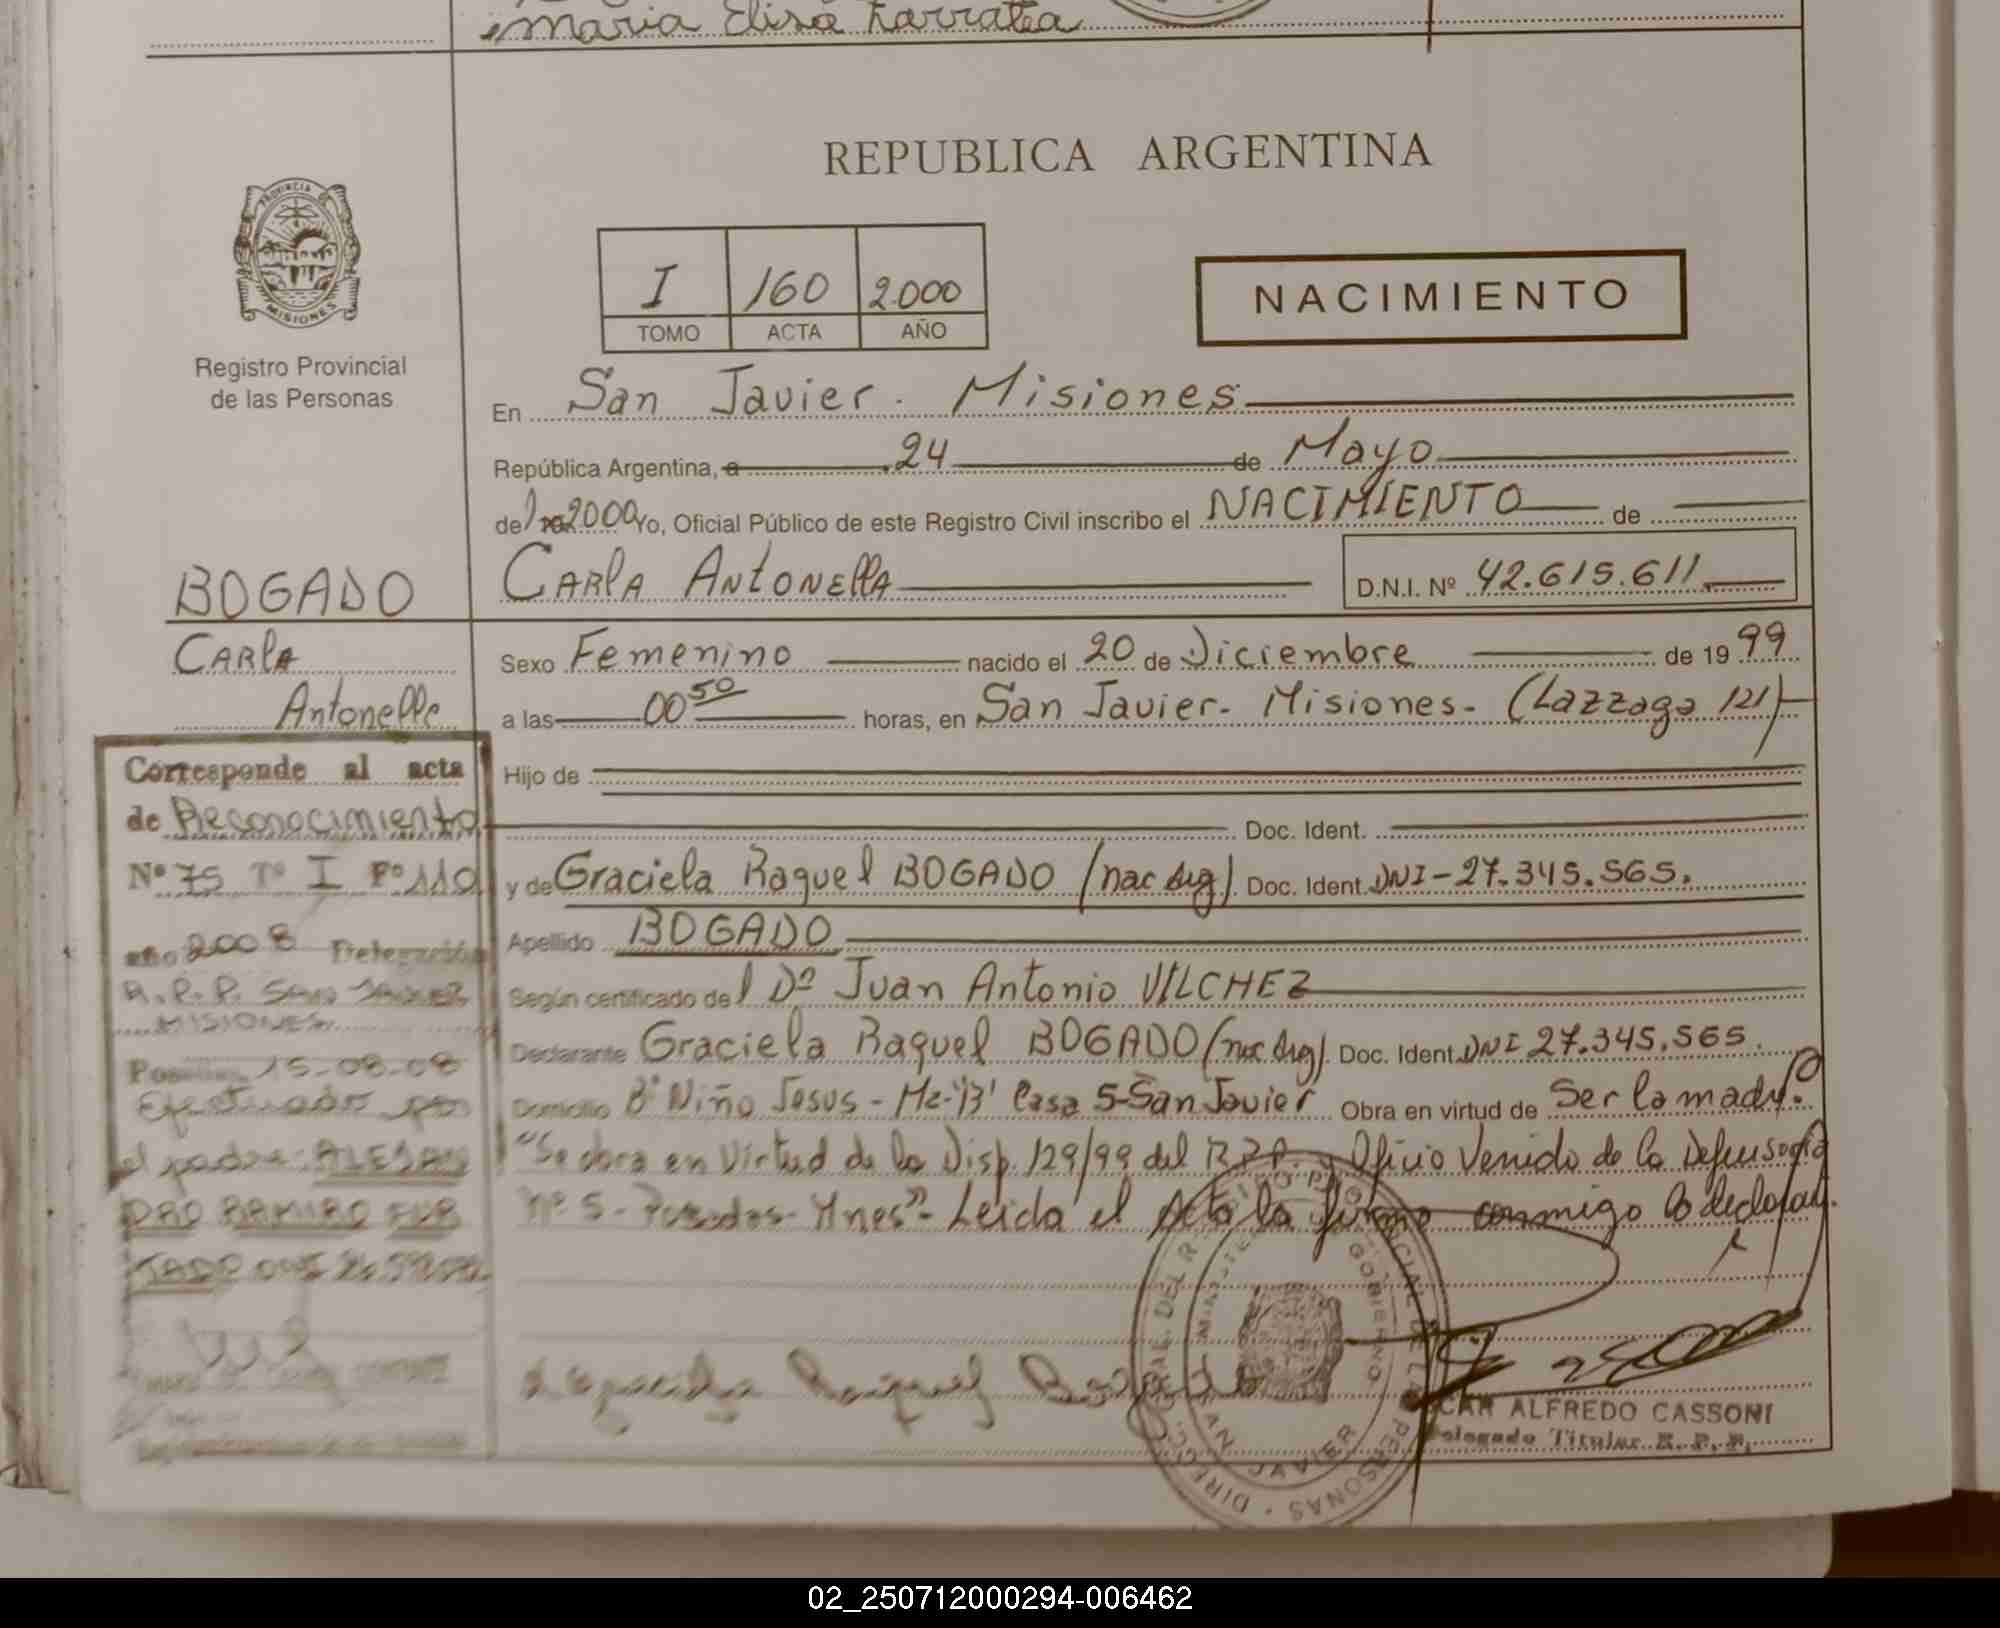 Maria Elisa Larratea
REPUBLICA ARGENTINA
PROVINCIA DE
MISIONES
Registro Provincial
de las Personas
I 160 2.000
TOMO ACTA AÑO
NACIMIENTO
En San Javier. Misiones
República Argentina, a 24 de Mayo
del 2000 Yo, Oficial Público de este Registro Civil inscribo el NACIMIENTO de
CARlA ANtONEllA D.N.I. Nº 42.615.611
Sexo Femenino nacido el 20 de Diciembre de 19 99
a las 00 50 horas, en San Javier. Misiones. (Lazzaga 121)
Hijo de
Doc. Ident.
y de Graciela Raquel BOGADO (nac Arg). Doc. Ident. DNI-27.345.565.
Apellido BOGADO
Según certificado del Dº Juan Antonio VILCHEZ
Declarante Graciela Raquel BOGADO (nac Arg). Doc. Ident. DNI 27.345.565.
Domicilio Bº Niño Jesus - Mz-"13" Casa 5-San Javier Obra en virtud de Ser la madre.
"Se obra en Virtud de la Disp. 129/99 del R.P.P. y Oficio Venido de la Defensoria
Nº 5 - Posadas - Mnes". Leida el Acta la firma conmigo la declarante.
Graciela Raquel Bogado
DIRECC. GRAL. DEL REGISTRO PROVINCIAL DE LAS PERSONAS
MINISTERIO GOBIERNO
SAN JAVIER
ALFREDO CASSONI
Delegado Titular R. P. P.
BOGADO
CARlA
Antonella
Corresponde al acta
de Reconocimiento
Nº 75 Tº I Fº 110
año 2008 Delegación
R.P.P. SAN JAVIER
MISIONES
15-08-08
Efectuado por
el padre: ALEJAN
DRO RAMIRO FUR
TADO DNI
02_250712000294-006462